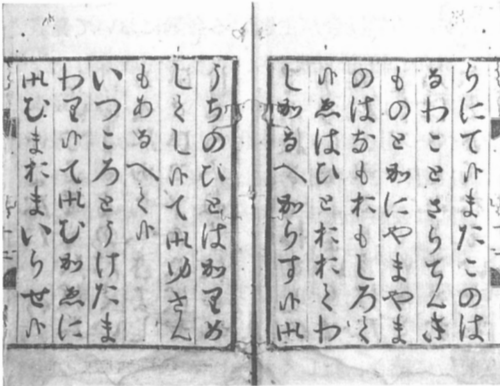 らにて候またこのは
るわことさらてんき
ものとかにやまやま
のはなもおもしろく
候ゑはひとおおくわ
しかるへからす候御
うちのひとはかりめ
しくし候て御ゆさん
もあるへく候
いつころとうけたま
わり候て御むかゑに
御むまおまいらせ候